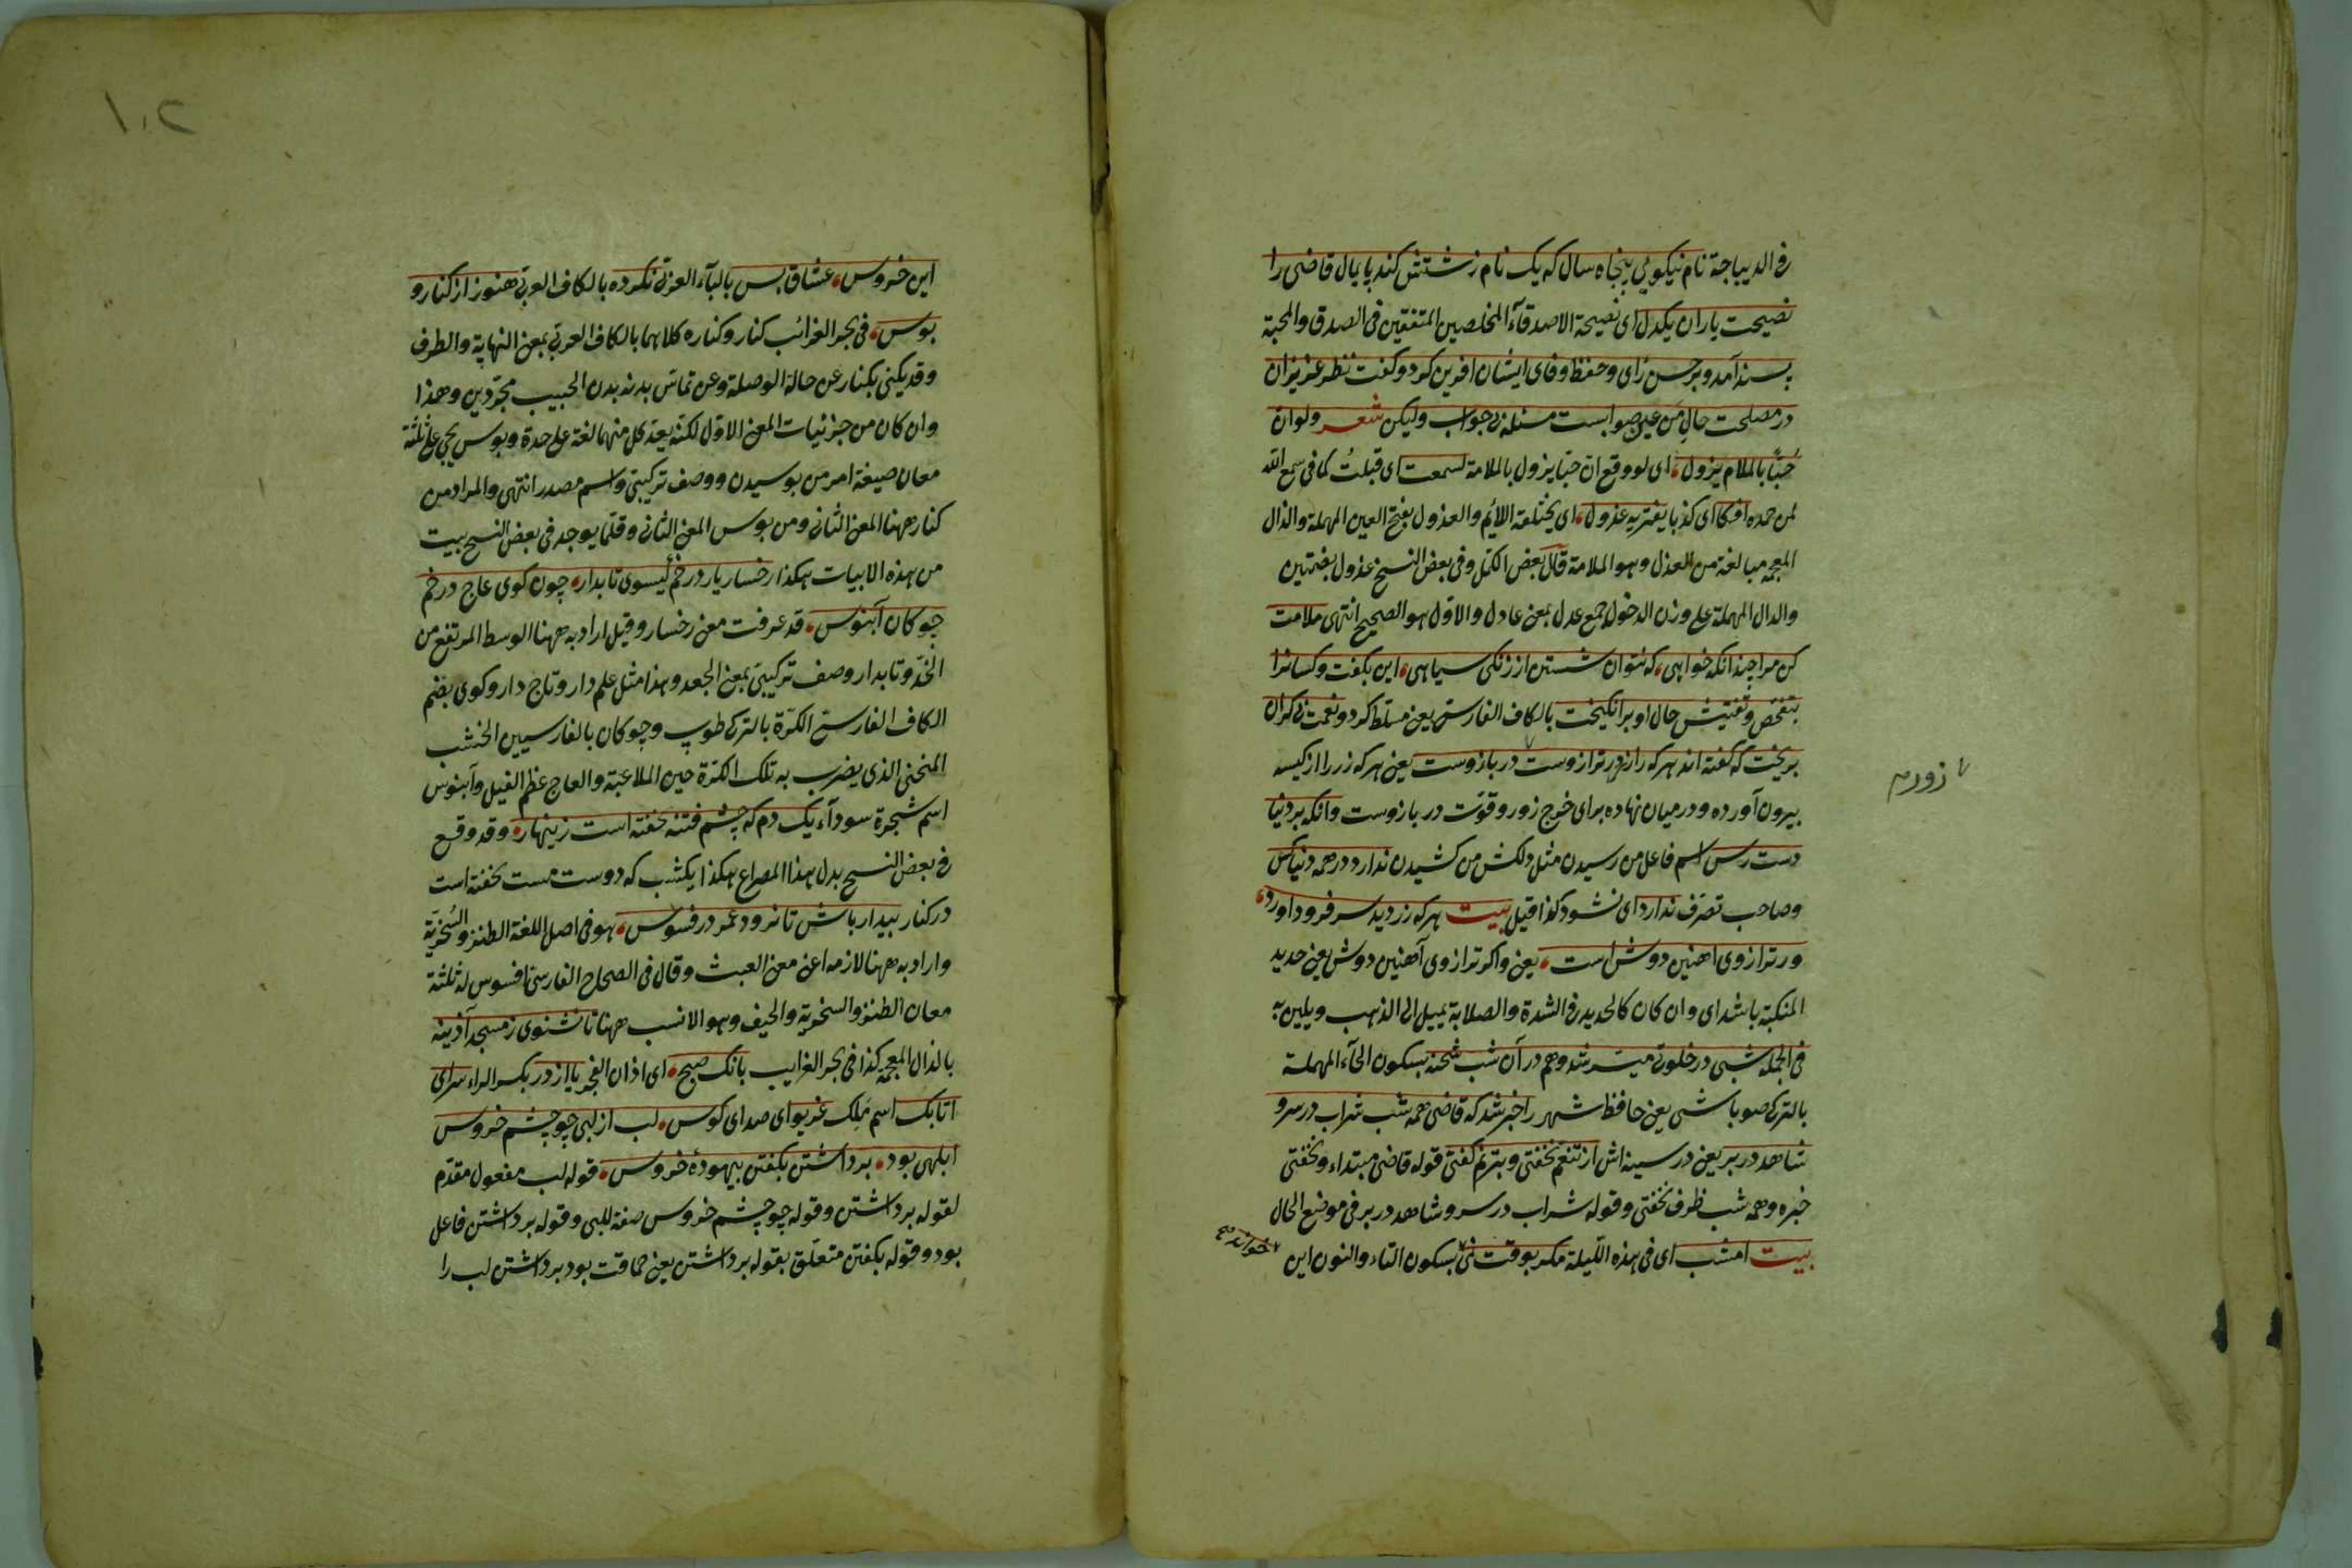 فى الديباجة نام نيكويى پنجاه سال كه يك نام زشتش كند پايمال قاضى را
نصيحت ياران يكدل اى نصيحة الاصدقآء المخلصين المتفقين فى الصدق والمحبة
پسند آمد و بر حسن راى و حفظ وفاى ايشان افرين كرد و كفت نظر عزيزان
در مصلحت حال من عين صوابست مسئله بى جواب وليكن شعر ولو ان
حُبًّا بالملام يزول اى لو وقع ان حبّا يزول بالملامة لسمعت اى قبلتُ كما فى سمع الله
لمن حمده افكا اى كذبا يفتريه عذول اى يختلقه اللائم والعذول بفتح العين المهملة والذال
المعجمة مبالغة من العذل وهو الملامة قال بعض الكمل وفى بعض النسخ عذول بضمتين
والدال المهملة على وزن الدخول جمع عدل بمعنى عادل والاوّل هو الصحيح انتهى ملامت
كن مرا چندانكه خواهى كه نتوان شستن از زنكى سياهى اين بكفت وكسانرا
بتفحّص وتفتيش حال او برانكيخت بالكاف الفارسىّ يعنى مسلّط كرد ونعمت بى كران
بريخت كه كفته اند هر كه را زر در ترازوست در بازوست يعنى هر كه زر را از كيسه
بيرون آورده ودر ميان نهاده براى خرج زور وقوّت در بازوست وانكه بر دنيا
دست رس اسم فاعل من رسيدن مثل دلكش من كشيدن ندارد در همه دنيا كس
وصاحب تصرّف ندارد اى نشود كذا قيل بيت هر كه زر ديد سر فرود اورد
ور ترازوى اهنين دوش است يعنى واكر ترازوى آهنين دوش يعنى حديد
المنكبة باشد اى وان كان كالحديد فى الشدة والصلابة يميل الى الذهب ويلين به
فى الجمله شبى در خلوتى ميسّر شد وهم در آن شب شحنه بسكون الحآء المهملة
بالتركى صوباشى يعنى حافظ شهر را خبر شد كه قاضى همه شب شراب در سر و
شاهد در بر يعنى در سينه اش از تنعّم نخفتى وبترنم كفتى قوله قاضى مبتداء ونخفتى
خبره وهمه شب ظرف نخفتى وقوله شراب در سر وشاهد در بر فى موضع الحال
بيت امشب اى فى هذه الليلة مكر بوقت نمى بسكون التاء والنون اين
خواند
زورم
١٠٢
اين خروس عشاق بس بالبآء العربى نكرده بالكاف العربى هنوز از كنار و
بوس فى بحر الغرائب كنار وكناره كلاهما بالكاف العربى بمعنى النهاية والطرف
وقد يكنى بكنار عن حالة الوصلة وعن تماسّ بدنه بدن الحبيب مجرّدين وهذا
وان كان من جزئيات المعنى الاوّل لكنّه يعدّ كل منهما لغة على حدة وبوس يجئ على ثلثة
معان صيغة امر من بوسيدن ووصف تركيبىّ واسم مصدر انتهى والمراد من
كنار ههنا المعنى الثانى ومن بوس المعنى الثانى وقلّما يوجد فى بعض النسخ بيت
من هذه الابيات هكذا رخسار يار در خم كيسوى تابدار چون كوى عاج در خم
چوكان آبنوس قد عرفت معنى رخسار وقيل اراد به ههنا الوسط المرتفع من
الخدّ وتابدار وصف تركيبىّ بمعنى الجعد وهذا مثل علم دار وتاج دار وكوى بضم
الكاف الفارسىّ الكرّة بالتركى طوپ وچوكان بالفارسيين الخشب
المنحنى الذى يضرب به تلك الكرّة حين الملاعبة والعاج عظم الفيل وآبنوس
اسم شجرة سودآء يك دم كه چشم فتنه بخفته است زينهار وقد وقع
فى بعض النسخ بدل هذا المصراع هكذا يكشب كه دوست مست بخفته است
در كنار بيدار باش تا نرود عمر در فسوس هو فى اصل اللغة الطنز والسُخريّة
واراد به ههنا لازمه اعنى معنى العبث وقال فى الصحاح الفارسىّ افسوس له ثلثة
معان الطنز والسخرية والحيف وهو الانسب ههنا تا نشنوى ز مسجد آذينه
بالذال المعجمة كذا فى بحر الغرايب بانك صبح اى اذان الفجر يا از در بكسر الراء سراى
اتابك اسم مَلِك غريو اى صداى كوس لب از لبى چو چشم خروس
ابلهى بود برداشتن بكفتن بيهودۀ خروس قوله لب مفعول مقدّم
لقوله برداشتن وقوله چو چشم خروس صفة للبى وقوله برداشتن فاعل
بود وقوله بكفتن متعلّق بقوله برداشتن يعنى حماقت بود برداشتن لب را